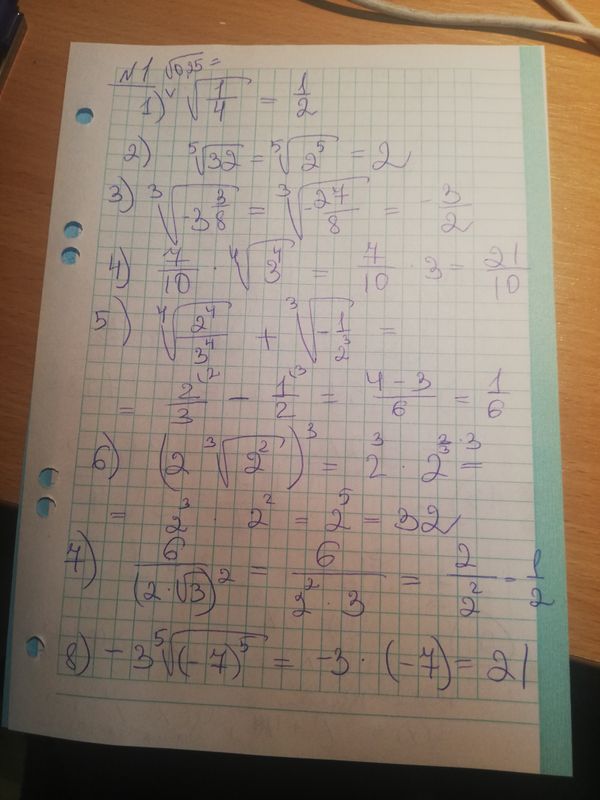 №1 √0,25 =
1) √(1/4) = 1/2
2) ⁵√32 = ⁵√(2⁵) = 2
3) ³√(-3 3/8) = ³√(-27/8) = -3/2
4) 7/10 · ⁴√(3⁴) = 7/10 · 3 = 21/10
5) ⁴√(2⁴/3⁴) + ³√(-1/2³) =
= 2/3 - 1/2 = (4-3)/6 = 1/6
6) (2 ³√(2²))³ = 2³ · 2^(2/3 · 3) =
= 2³ · 2² = 2⁵ = 32
7) 6/(2·√3)² = 6/(2² · 3) = 2/2² = 1/2
8) -3 ⁵√((-7)⁵) = -3 · (-7) = 21